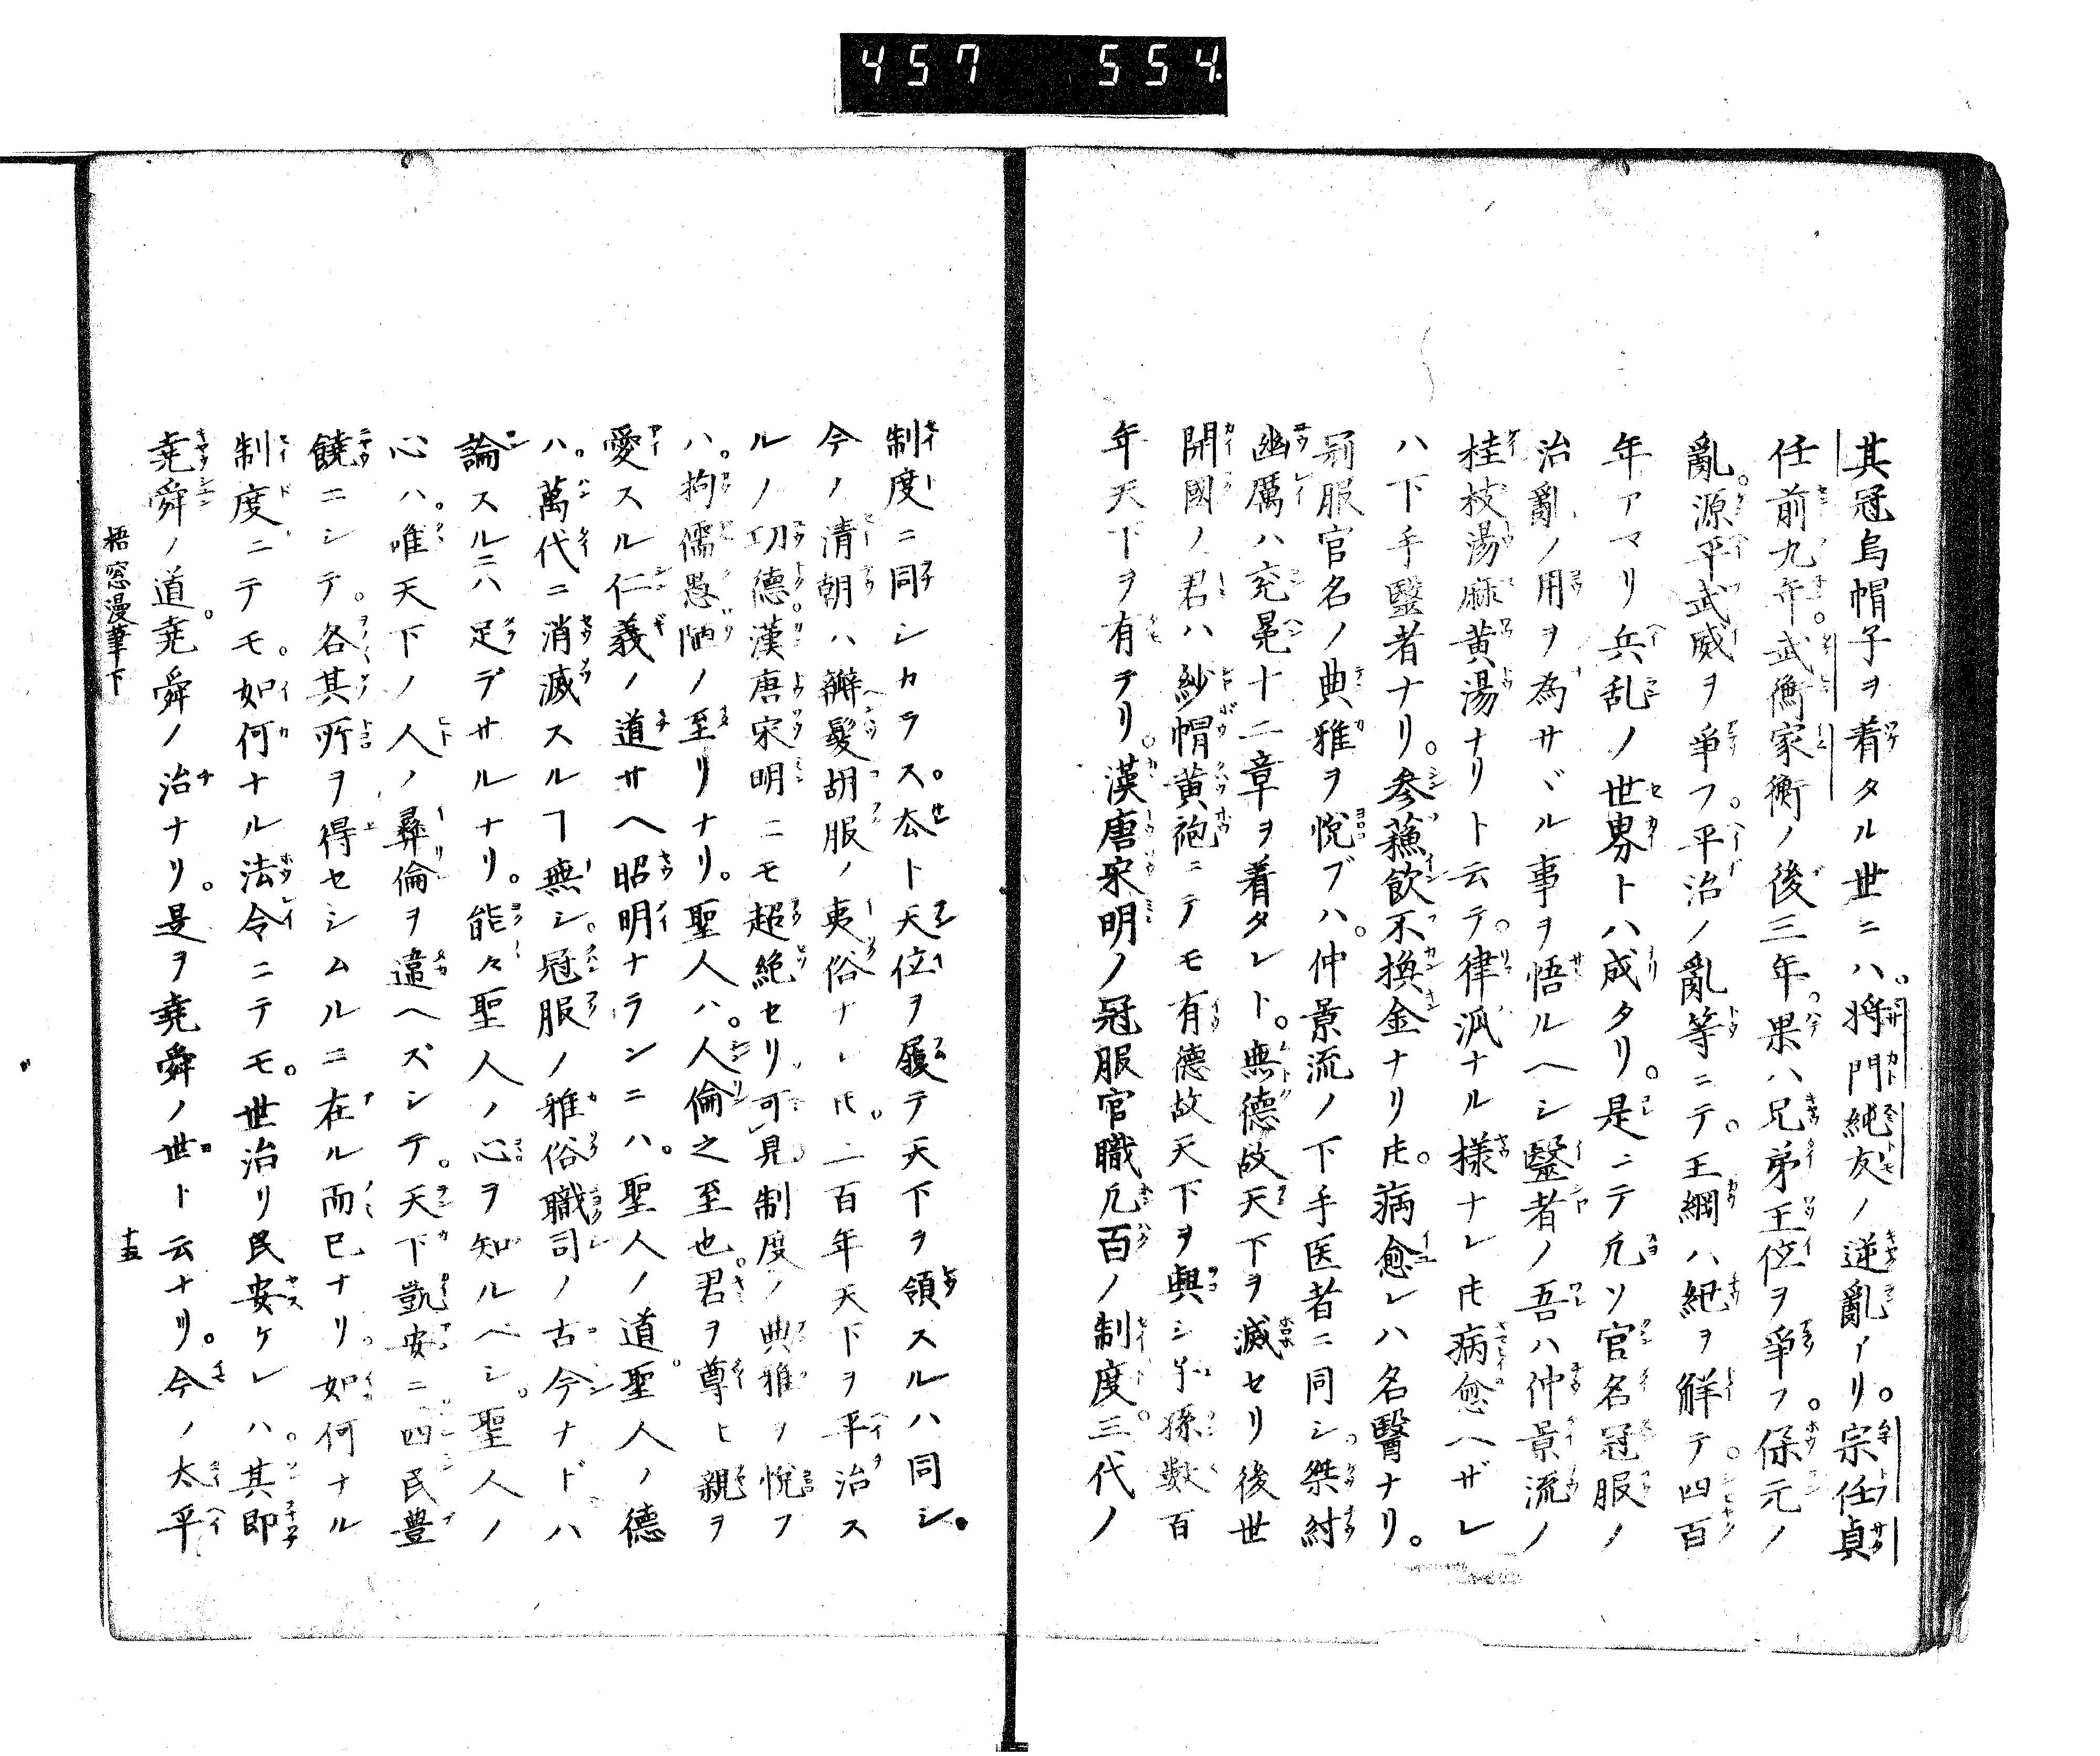 457 554
其冠烏帽子ヲ着タル世ニハ。将門純友ノ逆亂アリ。宗任貞
任前九年。武衡家衡ノ後三年。果ハ兄弟王位ヲ爭フ。保元ノ
亂。源平武威ヲ爭フ。平治ノ亂等ニテ。王綱ハ紐ヲ解テ。四百
年アマリ兵乱ノ世界トハ成タリ。是ニテ凢ソ官名冠服ノ
治亂ノ用ヲ為サヾル事ヲ悟ルヘシ醫者ノ吾ハ仲景流ノ
桂枝湯麻黄湯ナリト云テ。律派ナル様ナレ𪜈病愈ヘザレ
ハ下手醫者ナリ。参蘓飲不換金ナリ𪜈。病愈レハ名醫ナリ。
冠服官名ノ典雅ヲ悦ブハ。仲景流ノ下手医者ニ同シ。桀紂
幽厲ハ兖冕十二章ヲ着タレト。無德故天下ヲ滅セリ後世
開國ノ君ハ紗帽黄袍ニテモ有德故天下ヲ興シ子孫数百
年天下ヲ有テリ。漢唐宋明ノ冠服官職凢百ノ制度。三代ノ
制度ニ同シカラス。夳ト天位ヲ履テ天下ヲ領スルハ同シ。
今ノ清朝ハ辮髮胡服ノ夷俗ナレ𪜈。二百年天下ヲ平治ス
ルノ功德。漢唐宋明ニモ超絶セリ可見制度ノ典雅ヲ悦フ
ハ。拘儒愚陋ノ至リナリ。聖人ハ。人倫之至也。君ヲ尊ヒ親ヲ
愛スル仁義ノ道サヘ昭明ナランニハ。聖人ノ道。聖人ノ德
ハ。萬代ニ消滅スルヿ無シ。冠服ノ雅俗職司ノ古今ナドハ
論スルニハ足ラサルナリ。能々聖人ノ心ヲ知ルベシ。聖人ノ
心ハ。唯天下ノ人ノ彛倫ヲ違ヘズシテ。天下凱安ニ。四民豊
饒ニシテ。各其所ヲ得セシムルニ在ル而已ナリ。如何ナル
制度ニテモ。如何ナル法令ニテモ。世治リ民安ケレハ。其即
堯舜ノ道。堯舜ノ治ナリ。是ヲ堯舜ノ世ト云ナリ。今ノ太平
梧窓漫筆下
十五